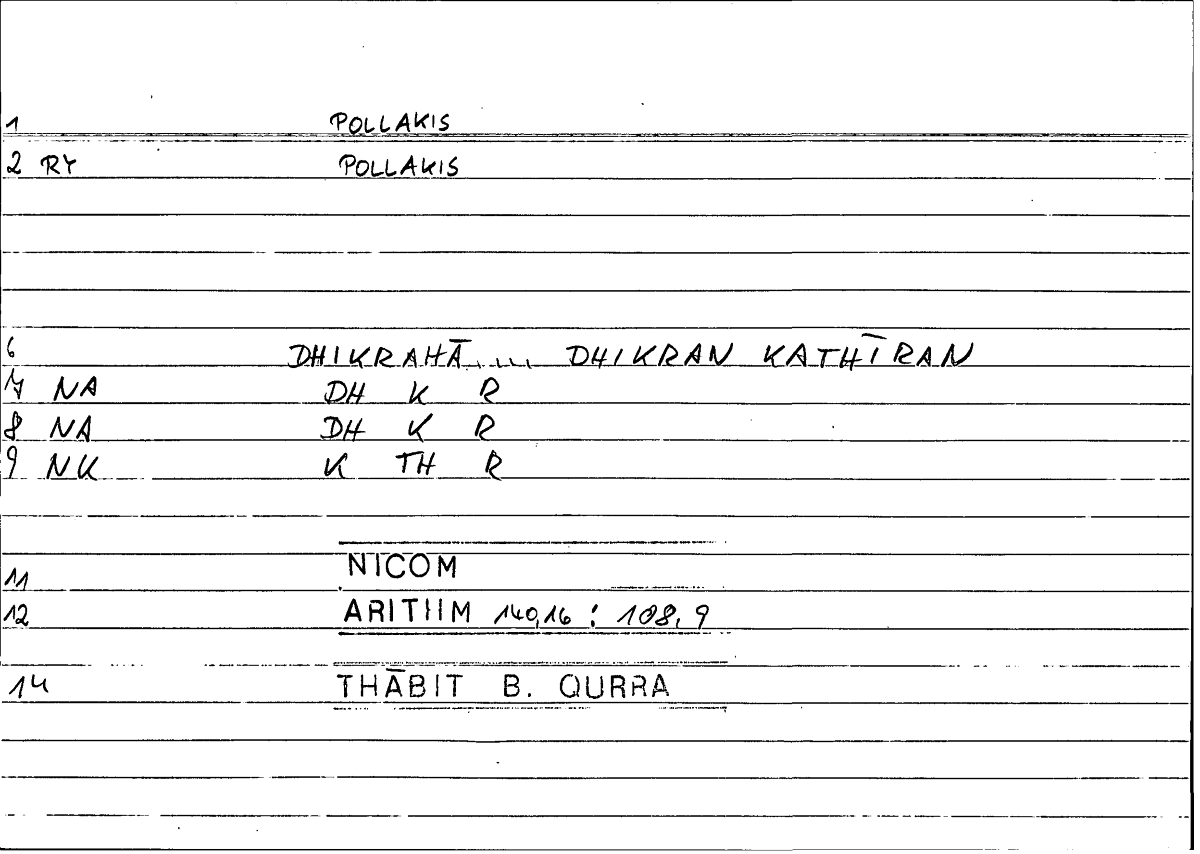 1 POLLAKIS
2 RY POLLAKIS
6 DHIKRAHĀ.... DHIKRAN KATHĪRAN
7 NA DH K R
8 NA DH K R
9 NK K TH R
11 NICOM
12 ARITHM 140,16 : 108,9
14 THĀBIT B. QURRA